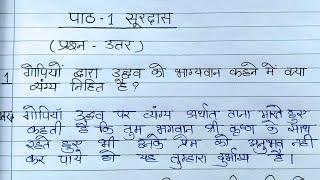 पाठ-1 सूरदास
(प्रश्न-उत्तर)
1 गोपियों द्वारा उद्धव को भाग्यवान कहने में क्या
व्यंग्य निहित है?
गोपियां उद्धव पर व्यंग्य अर्थात ताना मारते हुए
कहती है कि तुम भगवान श्री कृष्ण के साथ
रहते हुए भी उनके प्रेम को अनुभव नही
कर पाये हो यह तुम्हारा दुर्भाग्य है।